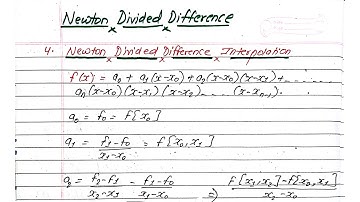 Newton Divided Difference
4. Newton Divided Difference Interpolation
f(x) = a₀ + a₁(x-x₀) + a₂(x-x₀)(x-x₁) +
aₙ(x-x₀)(x-x₁)(x-x₂) .... (x-xₙ₋₁).
a₀ = f₀ = f[x₀]
a₁ = (f₁-f₀)/(x₁-x₀) = f[x₀,x₁]
a₂ = (f₂-f₁)/(x₂-x₁) - (f₁-f₀)/(x₁-x₀) ⇒ (f[x₁,x₂]-f[x₀,x₁])/(x₂-x₀)